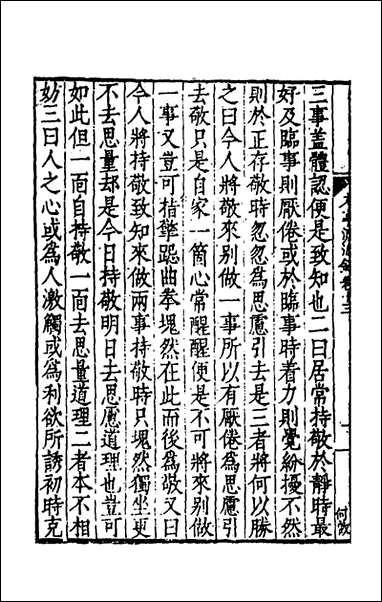 三事蓋體認便是致知也二曰居常持敬於靜時最
好及臨事則厭倦或於臨事時着力則覺紛擾不然
則於正存敬時忽忽爲思慮引去是三者將何以勝
之曰今人將敬來別做一事所以有厭倦爲思慮引
去敬只是自家一箇心常醒醒便是不可將來別做
一事又豈可指擎跽曲拳塊然在此而後爲敬又曰
今人將持敬致知來做兩事持敬時只塊然獨坐更
不去思量却是今日持敬明日去思慮道理也豈可
如此但一面自持敬一面去思量道理二者本不相
妨三曰人之心或爲人激觸或爲利欲所誘初時克